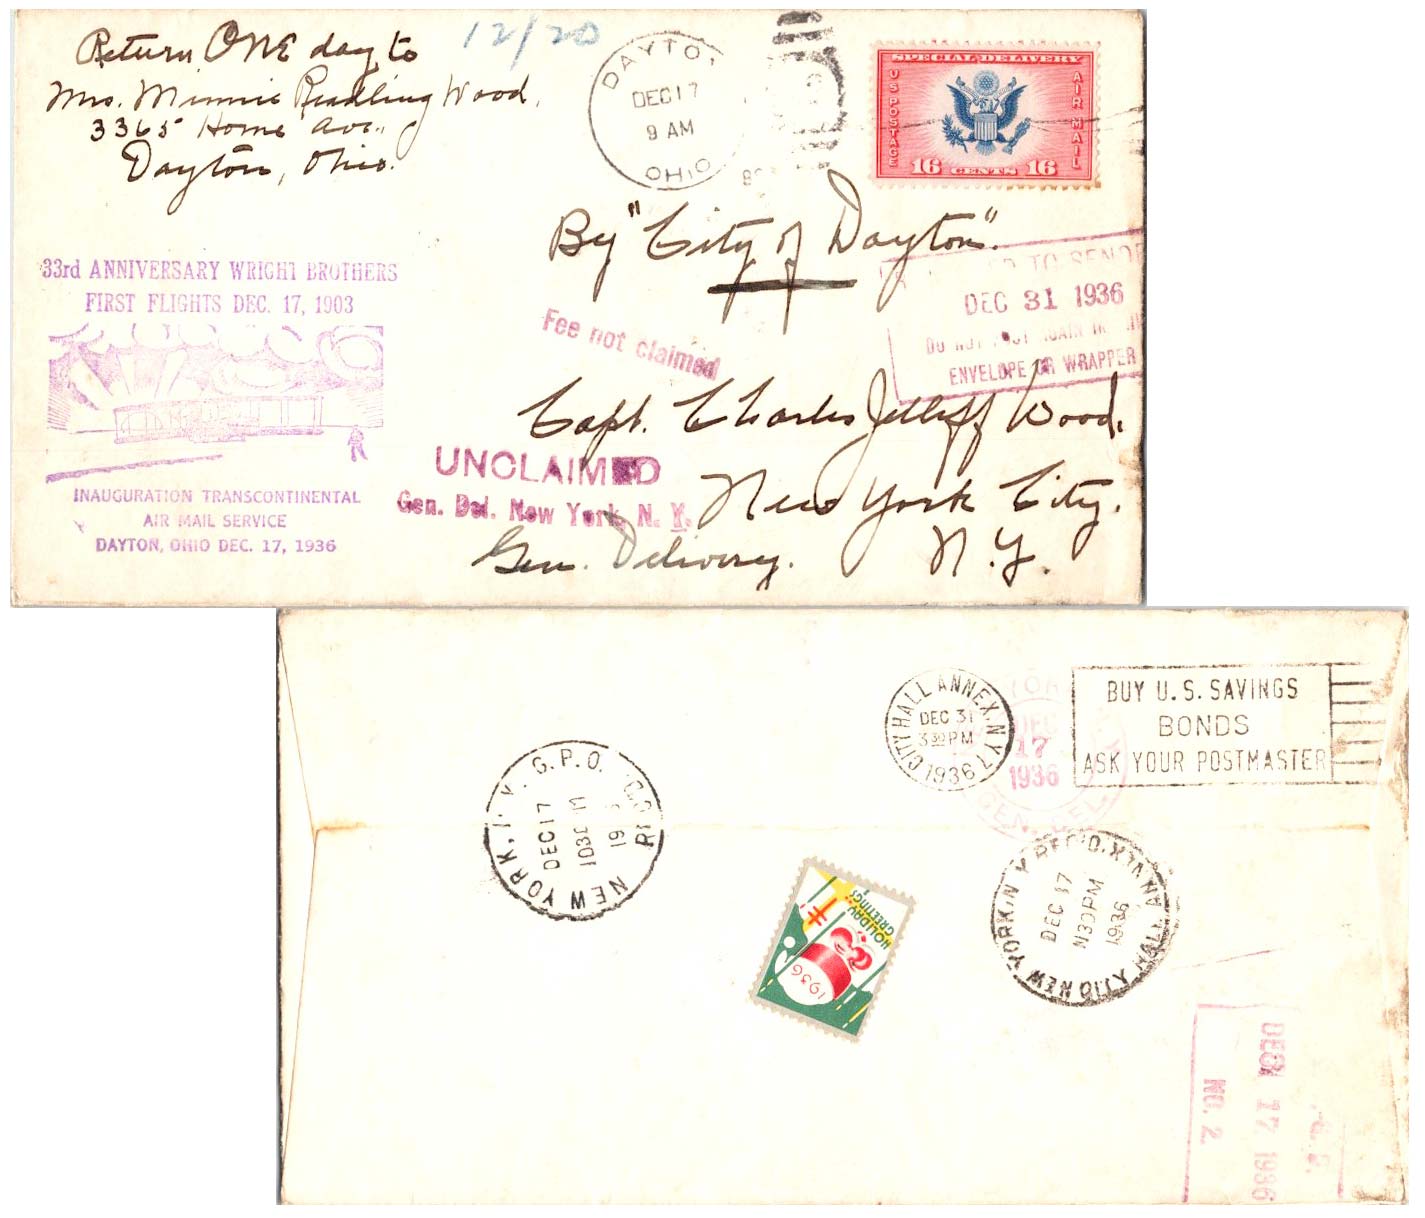 Return ONE day to
12/20
Mrs. Minnie Readling Wood,
3365 Home Ave.,
Dayton, Ohio.
DAYTON
DEC 17
9 AM
OHIO
SPECIAL DELIVERY
U S POSTAGE
AIR MAIL
16 CENTS 16
By "City of Dayton".
33rd ANNIVERSARY WRIGHT BROTHERS
FIRST FLIGHTS DEC. 17, 1903
TO SENDE
DEC 31 1936
DO NOT POST AGAIN IN
ENVELOPE OR WRAPPER
Fee not claimed
Capt. Charles Jelliff Wood,
UNCLAIMED
Gen. Del. New York, N. Y.
New York City.
Gen. Delivery. N. Y.
INAUGURATION TRANSCONTINENTAL
AIR MAIL SERVICE
DAYTON, OHIO DEC. 17, 1936
CITY HALL ANNEX, N.Y.
DEC 31
3 30 PM
1936
DEC
17
1936
GEN. DEL.
BUY U.S. SAVINGS
BONDS
ASK YOUR POSTMASTER
NEW YORK, N.Y. G.P.O.
DEC 17
1030
19
HOLIDAY
GREETINGS
1936
NEW YORK, N.Y. REG'D.
CITY HALL ANNEX
DEC 17
1130PM
1936
DEC 17 1936
NO. 2